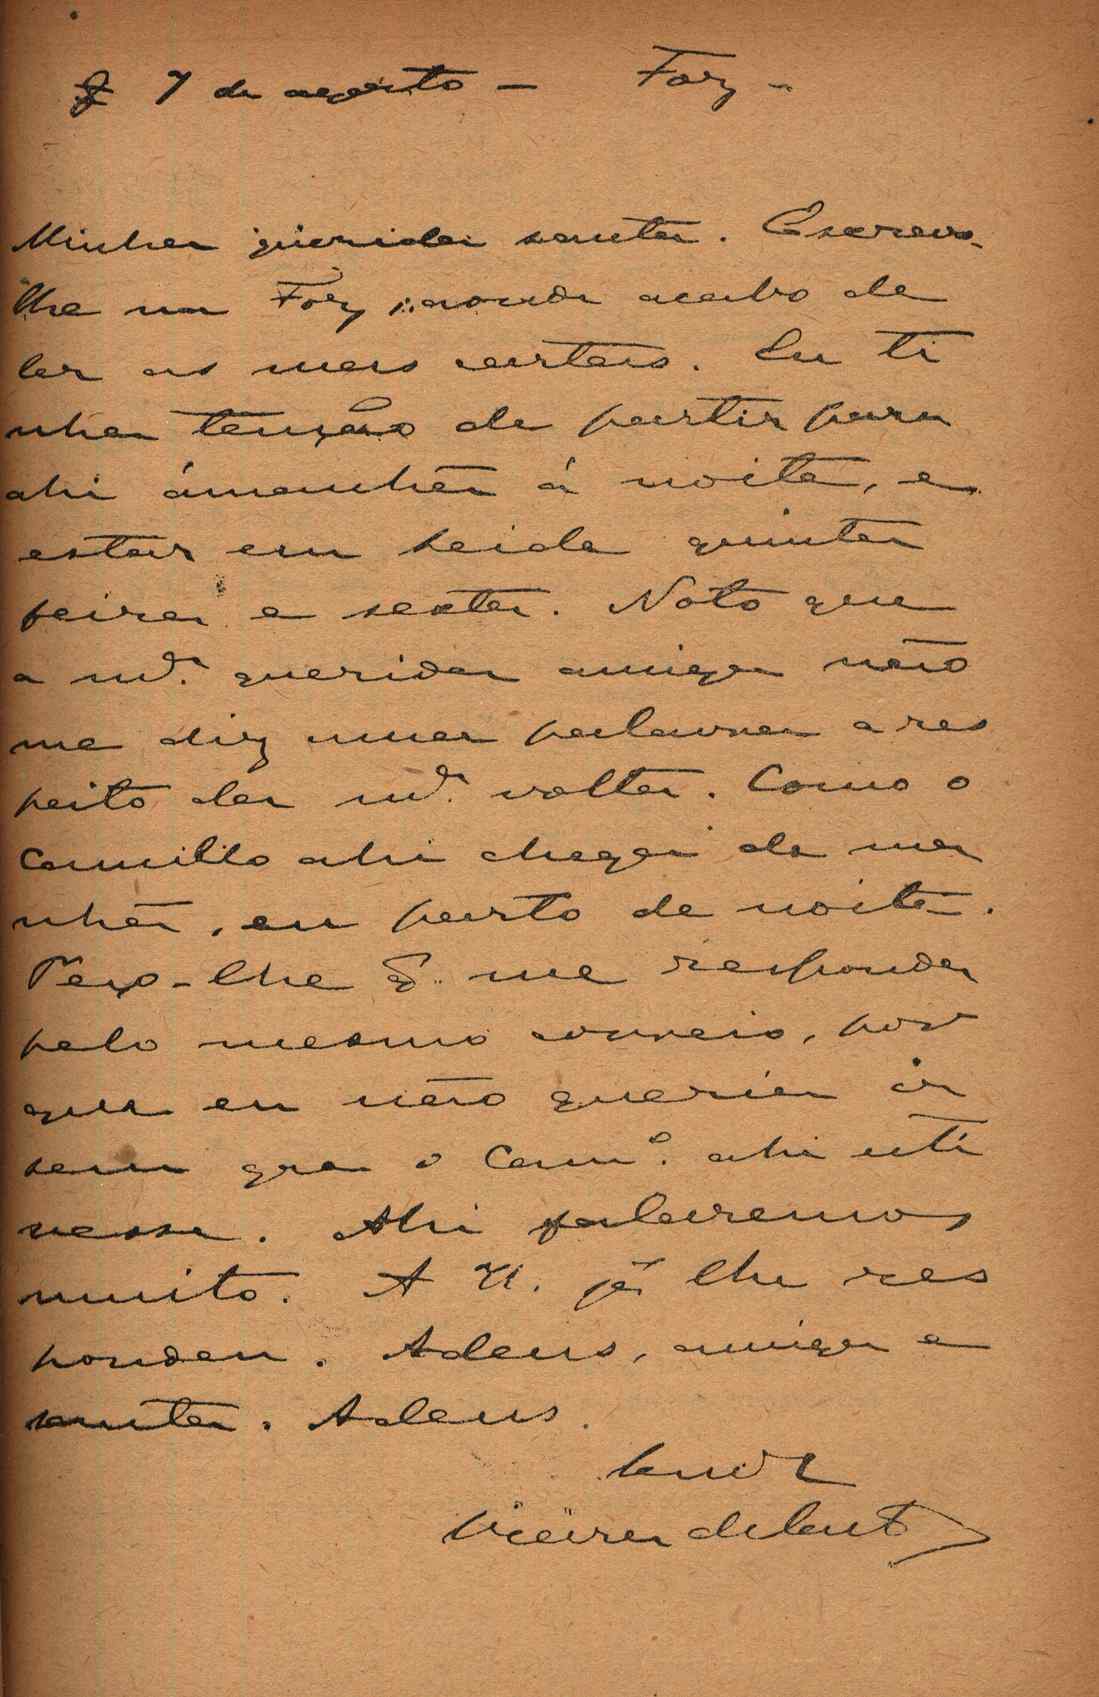 7 de agosto — Foz —
Minha querida santa. Escrevo-
lhe na Foz, aonde acabo de
ler as mas cartas. Eu ti
nha tenção de partir para
ahi ámanhã á noite, e
estar em Seide quinta
feira e sexta. Noto que
a m.ª querida amiga não
me diz uma palavra a res
peito da m.ª volta. Como o
Camillo ahi chega de ma
nhã, eu parto de noite.
Peço-lhe q. me responda
pelo mesmo correio, por
que eu não queria ir
sem que o Cam.º ahi esti
vesse. Ahi falaremos
muito. A N. já lhe res
pondeu. Adeus, amiga e
santa. Adeus.
Vieira de Castro